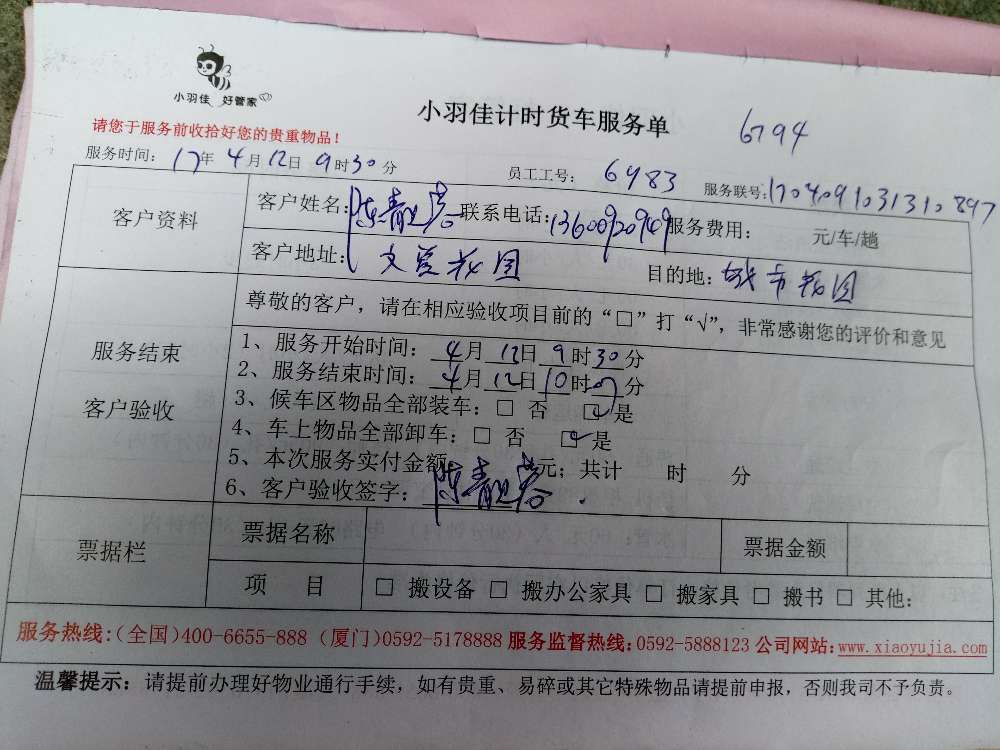 小羽佳 好管家
小羽佳计时货车服务单 6794
请您于服务前收拾好您的贵重物品！
服务时间：17年 4月12日 9时30分 员工工号：6983 服务联号：1704091031310897
客户资料 客户姓名：陈青 联系电话：13600920949 服务费用： 元/车/趟
客户地址：文 花园 目的地：城市花园
尊敬的客户，请在相应验收项目前的“□”打“√”，非常感谢您的评价和意见
服务结束
客户验收
1、服务开始时间：4月12日9时30分
2、服务结束时间：4月12日10时 分
3、候车区物品全部装车：□ 否 ☑是
4、车上物品全部卸车：□ 否 ☑是
5、本次服务实付金额 元；共计 时 分
6、客户验收签字：陈青
票据栏 票据名称 票据金额
项 目 □ 搬设备 □ 搬办公家具 □ 搬家具 □ 搬书 □ 其他：
服务热线：（全国）400-6655-888 （厦门）0592-5178888 服务监督热线：0592-5888123 公司网站：www.xiaoyujia.com
温馨提示：请提前办理好物业通行手续，如有贵重、易碎或其它特殊物品请提前申报，否则我司不予负责。